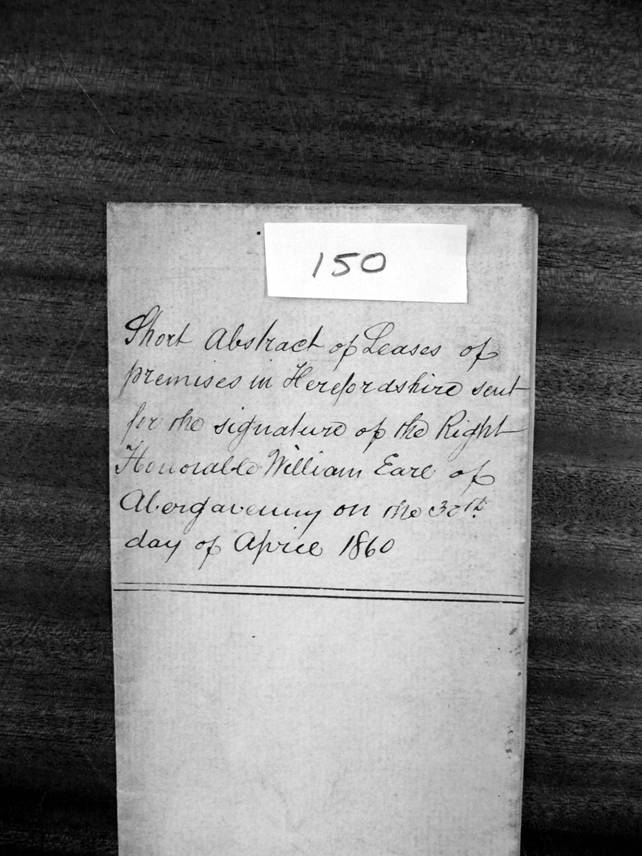 150
Short Abstract of Leases of
premises in Herefordshire sent
for the signature of the Right
Honorable William Earl of
Abergavenny on the 30th
day of April 1860